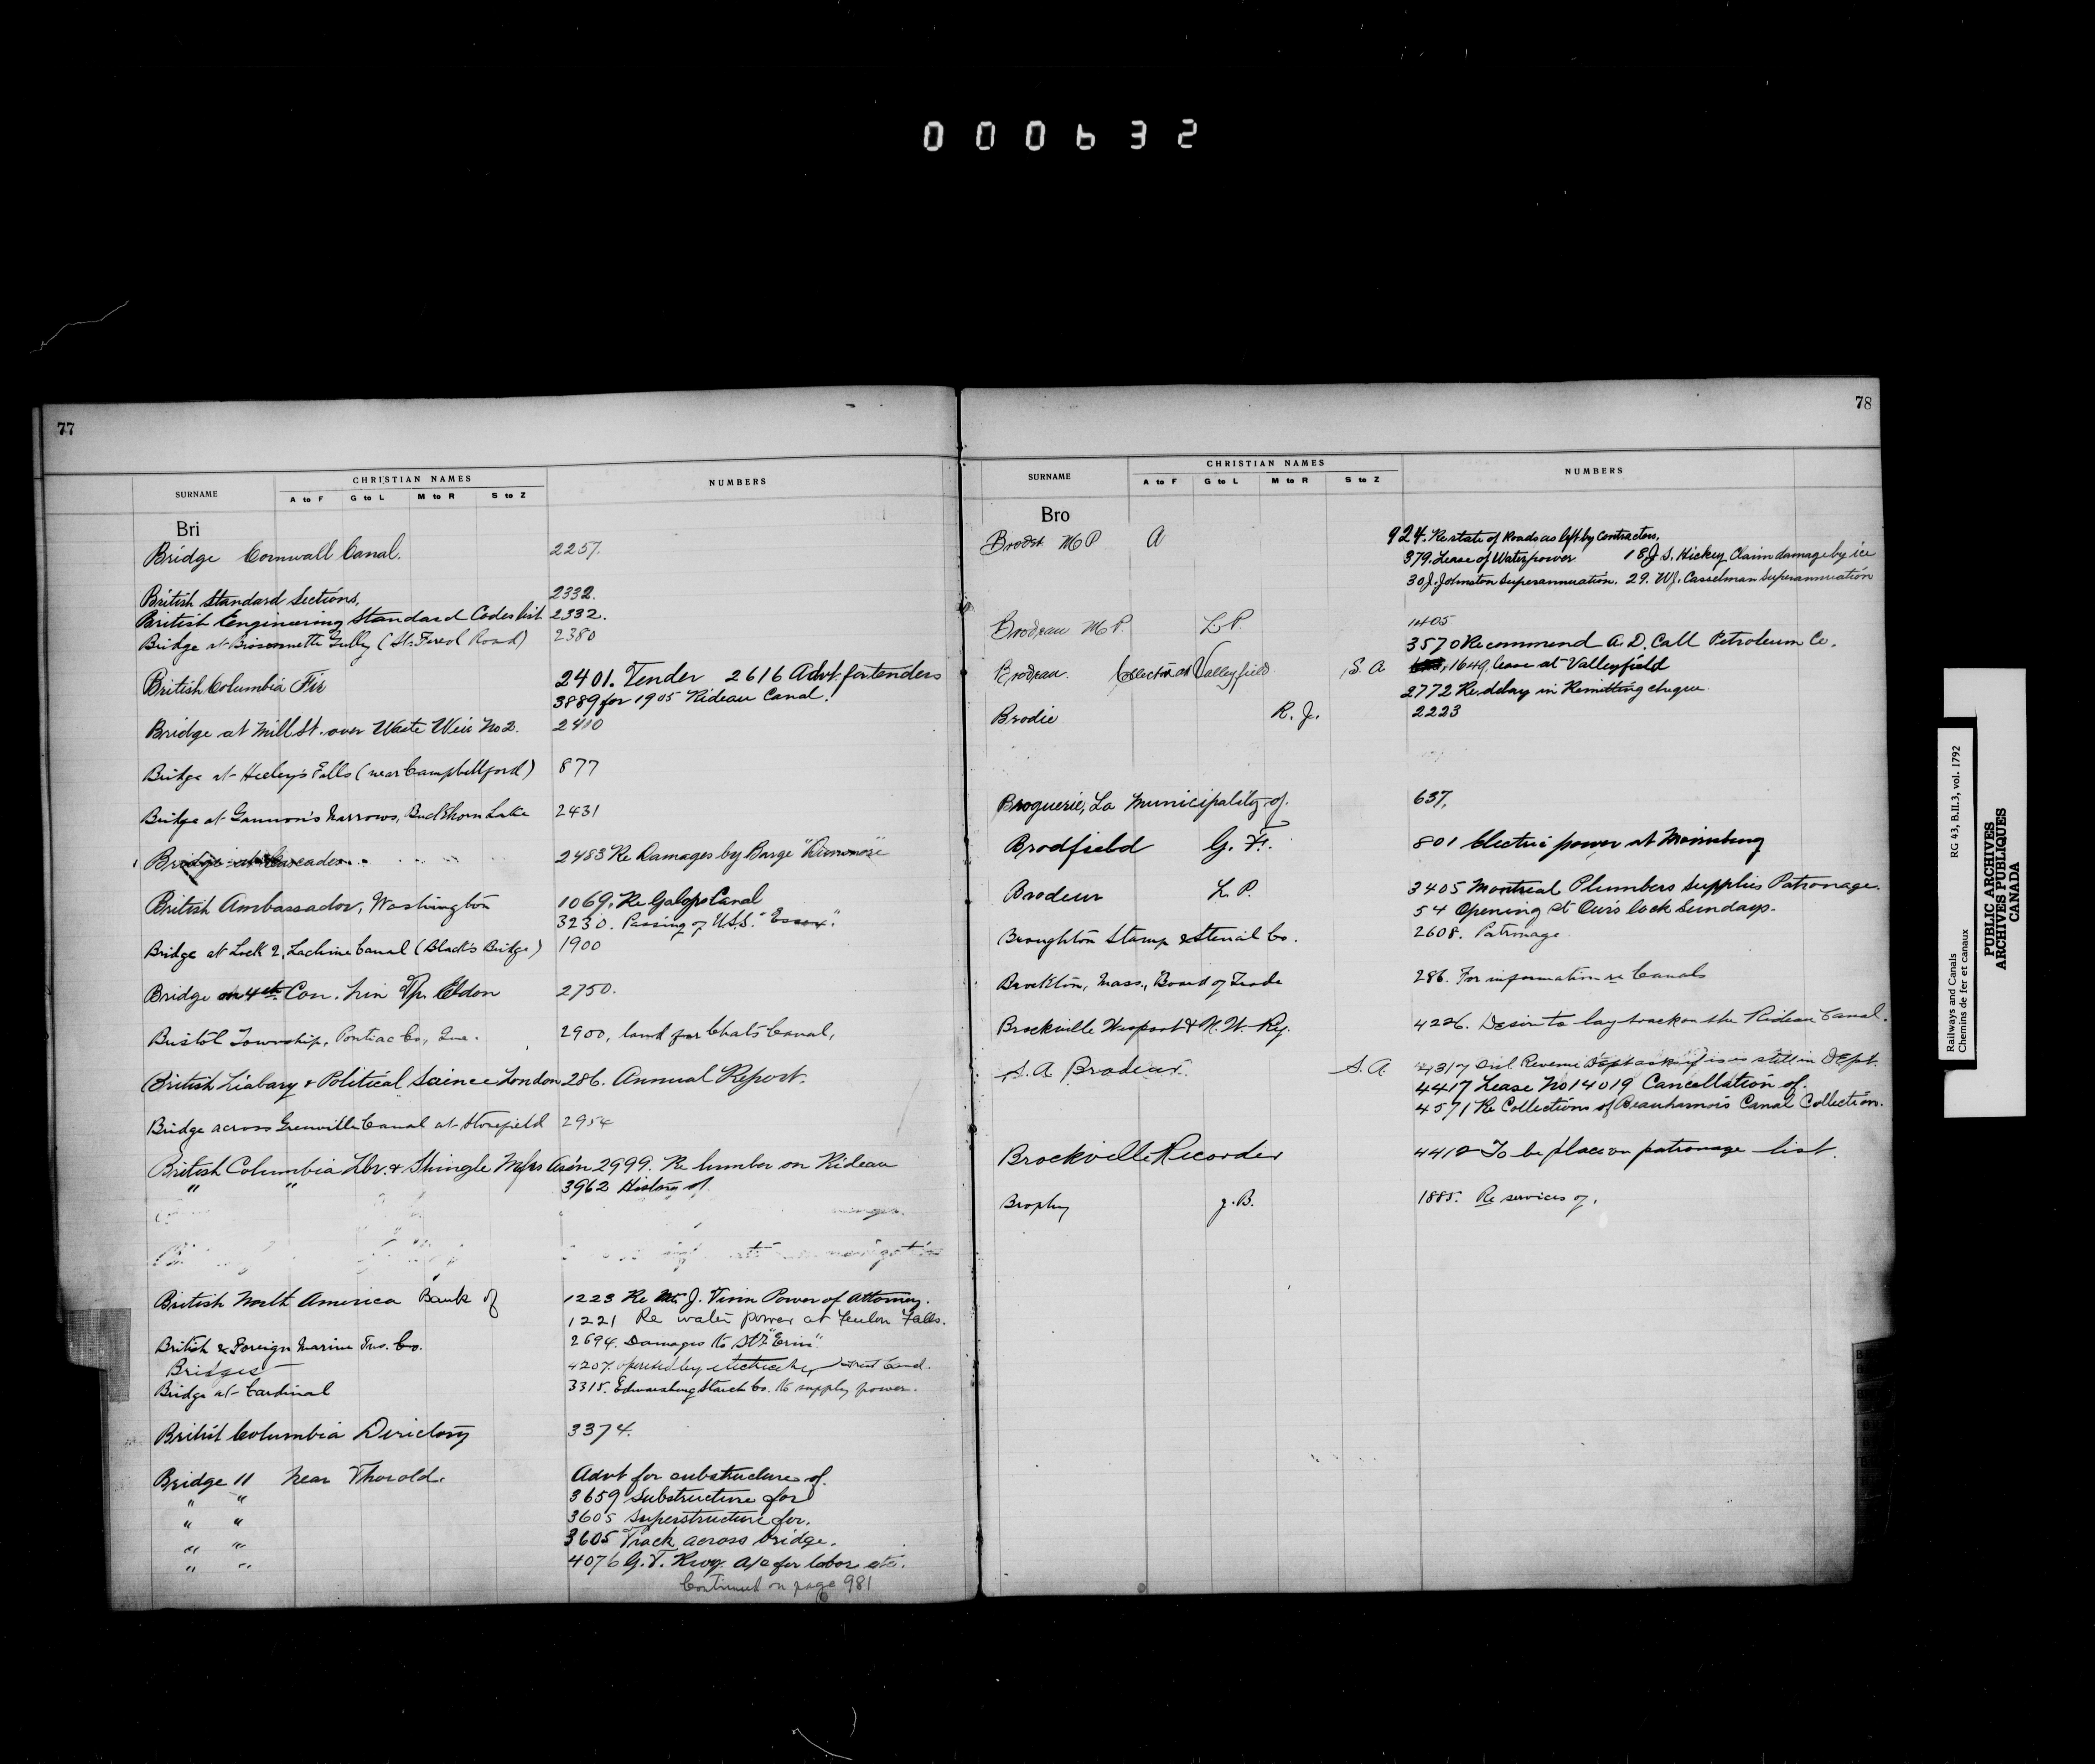 000632
77
SURNAME CHRISTIAN NAMES NUMBERS
A to F G to L M to R S to Z
Bri
Bridge Cornwall Canal. 2257.
British Standard Sections, 2332.
British Engineering Standard Codes list 2332.
Bridge at Gully (St. Ferol Road) 2380
British Columbia Fir 2401. Tender 2616 Advt. for tenders
3889 for 1905 Rideau Canal.
Bridge at Mill St. over Waste Weir No 2. 2410
Bridge at Heeley's Falls (near Campbellford) 877
Bridge at Gannon's Narrows, Buckhorn Lake 2431
Bridge at Cascades 2483 Re Damages by Barge
British Ambassador, Washington 1069. Re Galops Canal
3230. Passing of U.S.S. "Essex".
Bridge at Lock 2, Lachine Canal (Black's Bridge) 1900
Bridge on 4th Con. Tp. Eldon 2750.
Bristol Township, Pontiac Co., Que. 2900, land for Chats Canal,
British Liabary & Political Science London 286. Annual Report.
Bridge across Grenville Canal at Stonefield 2954
British Columbia Lbr. & Shingle Mfrs Ass'n 2999. Re lumber on Rideau
" " 3962 History of
British North America Bank of 1223 Re J. Power of Attorney.
1221 Re water power at Fenlon Falls.
British & Foreign Marine Ins. Co. 2694. Damages to Str. "Erin"
Bridges 4207. operated by
Bridge at Cardinal 3315. Edwardsburg Starch Co. to supply power.
British Columbia Directory 3374.
Bridge 11 near Thorold. Advt for substructure of.
" " 3659 Substructure for
" " 3605 Superstructure for.
" " 3605 Track across bridge.
" " 4076 G.T. Rwy. a/c for labor etc.
Continued on page 981
78
SURNAME CHRISTIAN NAMES NUMBERS
A to F G to L M to R S to Z
Bro
Broder M P A 924. Re state of Roads as left by Contractors,
379. Lease of Waterpower 18 J S. Hickey Claim damage by ice
30 J. Johnston Superannuation. 29. W.J. Casselman Superannuation
Brodeau M P. L P. 1405
3570 Recommend A. D. Call Petroleum Co.
Brodeau. Collector at Valleyfield S. A 1649, lease at Valleyfield
2772 Re. delay in Remitting cheque.
Brodie R. J. 2223
Broquerie, La Municipality of. 637,
Brodfield G. F. 801 Electric power at Morrisburg
Brodeur L. P. 3405 Montreal Plumbers Supplies Patronage.
54 Opening St Ours lock Sundays.
Broughton Stamp & Stencil Co. 2608. Patronage
Brockton, Mass., Board of Trade 286. For information re Canals
Brockville Westport & N. W. Ry. 4226. Desire to lay track on the Rideau Canal.
S. A Brodeur. S. A. 4317 Inl. Revenue Dept asking if is in still in Dept.
4417 Lease No 14019 Cancellation of.
4571 Re Collections of Beauharnois Canal Collection.
Brockville Recorder 4412 To be place on patronage list.
Brophy J. B. 1885. Re services of.
Railways and Canals RG 43, B.II.3, vol. 1792
Chemins de fer et canaux
PUBLIC ARCHIVES
ARCHIVES PUBLIQUES
CANADA